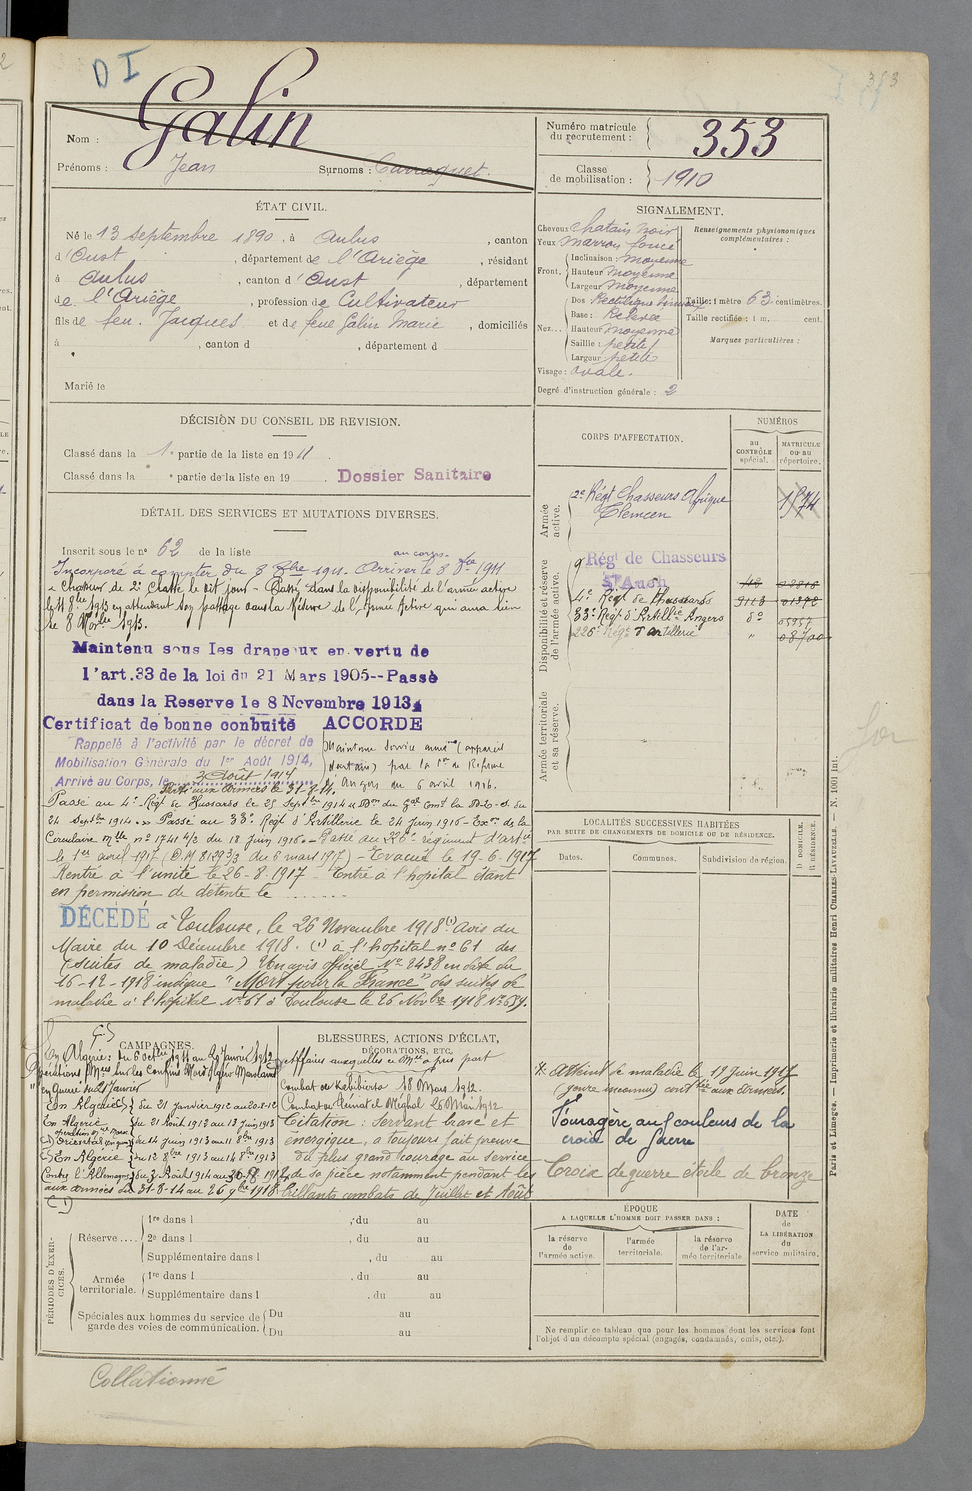 D I
353
Galin
Nom :
Prénoms : Jean Surnoms :
Numéro matricule du recrutement : 353
Classe de mobilisation : 1910
ÉTAT CIVIL.
Né le 13 septembre 1890, à Aulus, canton
d'Oust, département de l'Ariège, résidant
à Aulus, canton d'Oust, département
de l'Ariège, profession de Cultivateur
fils de feu Jacques et de feue Galin Marie, domiciliés
à , canton d , département d
Marié le
SIGNALEMENT.
Cheveux chatain noir
Yeux Marron foncé
Front. Inclinaison : moyenne
Hauteur moyenne
Largeur moyenne
Nez... Dos Rectiligne
Base :
Hauteur moyenne
Saillie : petite
Largeur petite
Visage : ovale.
Degré d'instruction générale : 2
Renseignements physionomiques complémentaires :
Taille : 1 mètre 63 centimètres.
Taille rectifiée : 1 m. cent.
Marques particulières :
DÉCISION DU CONSEIL DE REVISION.
Classé dans la 1e partie de la liste en 1911
Classé dans la e partie de la liste en 19 .
Dossier Sanitaire
DÉTAIL DES SERVICES ET MUTATIONS DIVERSES.
Inscrit sous le no 62 de la liste
au corps.
Incorporé à compter du 8 8bre 1911. Arrivé le 8 8bre 1911
Chasseur de 2e classe le dit jour - Passé dans la disponibilité de l'armée active
le 8 9bre 1913 en attendant son passage dans la Réserve de l'armée active qui aura lieu
le 8 Novbre 1913.
Maintenu sous les drapeaux en vertu de
l'art.33 de la loi du 21 Mars 1905--Passé
dans la Reserve le 8 Novembre 1913
Certificat de bonne conduite ACCORDE
Rappelé à l'activité par le décret de
Mobilisation Générale du 1er Août 1914,
Arrivé au Corps, le 3 Août 1914
Parti aux armées le 31-8-14.
Maintenu Service armé (appareil
dentaire) par la Con de Réforme
d'Angers du 6 avril 1916.
Passé au 4e Régt de Hussards le 25 Septbre 1914
24 Septbre 1914. Passé au 33e Régt d'Artillerie le 24 juin 1916 - Exon de la
Circulaire mlle no 1741 4/2 du 18 juin 1916. - Passé au 226e régiment d'artie
le 1er avril 1917 (D.M 8129 3/3 du 6 mars 1917) - Evacué le 19-6-1917
Rentré à l'unité le 26-8-1917 - Entré à l'hopital étant
en permission de détente le .......
DÉCÉDÉ à Toulouse, le 26 Novembre 1918 (1) Avis du
Maire du 10 Décembre 1918. (1) à l'hopital no 61 des
(suites de maladie) Un avis officiel No 2438 en date du
16-12-1918 indique "Mort pour la France" des suites de
maladie à l'hopital No 61 à Toulouse le 26 Novbre 1918 No 659.
CORPS D'AFFECTATION.
NUMÉROS
au CONTRÔLE spécial.
MATRICULE ou au répertoire.
Armée active.
2e Régt Chasseurs Afrique
Tlemcen
1574
Disponibilité et réserve de l'armée active.
9e Régt de Chasseurs
Auch
4e Régt de Hussards
33e Régt d'Artillie Angers
226e Régt d'artillerie
Armée territoriale et sa réserve.
LOCALITÉS SUCCESSIVES HABITÉES
PAR SUITE DE CHANGEMENTS DE DOMICILE OU DE RÉSIDENCE.
Dates. Communes. Subdivision de région.
D DOMICILE. R RÉSIDENCE.
CAMPAGNES.
En Algérie : du 6 octbre 1911 au 20 Janvier 1912
Opérations Mres sur les confins Algéro-Marocains
En Algérie du 21 janvier 1912 au 20-8-12
En Algérie du 21 Août 1912 au 13 juin 1913
du 14 juin 1913 au 11 8bre 1913
En Algérie du 12 8bre 1913 au 14 8bre 1913
Contre l'Allemagne du 3 Août 1914 au 30-8-1914
aux armées du 31-8-14 au 26 9bre 1918
BLESSURES, ACTIONS D'ÉCLAT, DÉCORATIONS, ETC.
Affaires auxquelles ce Mre a pris part
Combat de 18 Mars 1912.
Combat de 26 Mai 1912
Citation : Servant brave et
énergique, a toujours fait preuve
du plus grand courage au service
de sa pièce notamment pendant les
brillants combats de Juillet et Août
* Atteint de maladie le 19 juin 1917
(genre inconnu) aux armées.
Fourragère aux couleurs de la
croix de guerre
Croix de guerre étoile de bronze
PÉRIODES D'EXERCICES.
Réserve .... 1re dans l , du au
2e dans l , du au
Supplémentaire dans l , du au
Armée territoriale. 1re dans l , du au
Supplémentaire dans l , du au
Spéciales aux hommes du service de garde des voies de communication. Du au
Du au
ÉPOQUE
A LAQUELLE L'HOMME DOIT PASSER DANS :
la réserve de l'armée active.
l'armée territoriale.
la réserve de l'armée territoriale
DATE de LA LIBÉRATION du service militaire.
Ne remplir ce tableau que pour les hommes dont les services font
l'objet d'un décompte spécial (engagés, condamnés, omis, etc.).
Paris et Limoges. — Imprimerie et librairie militaires Henri CHARLES-LAVAUZELLE. — N. 1001 int.
Collationné